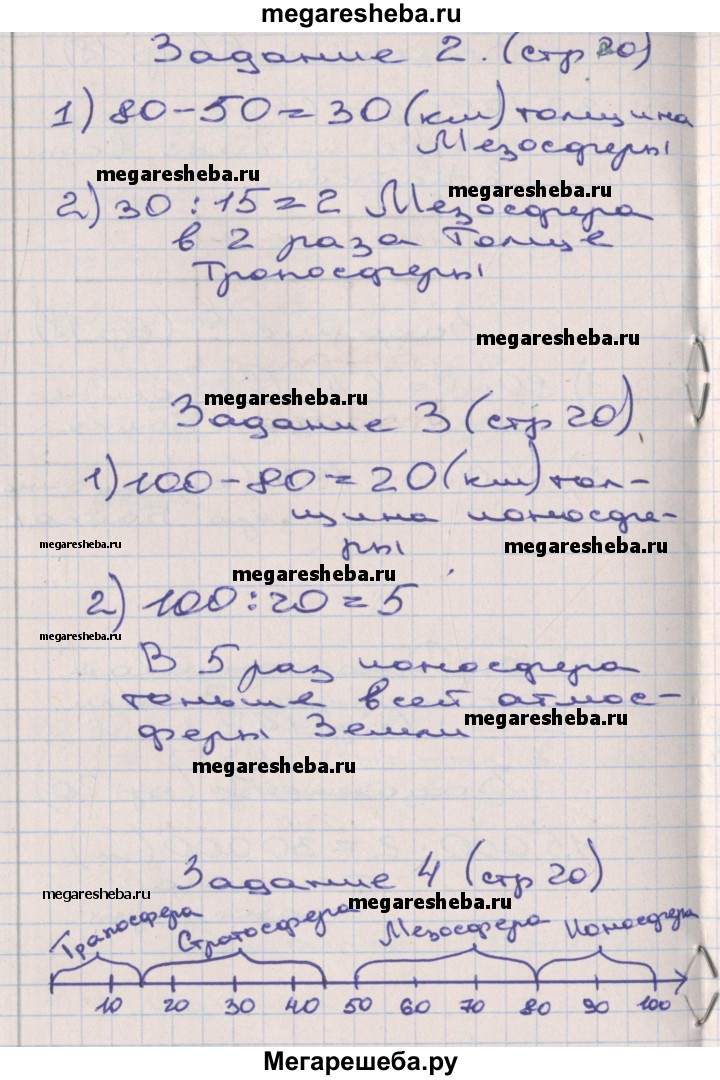 megaresheba.ru
Задание 2. (стр 20)
1) 80-50=30 (км) толщина
Мезосферы
megaresheba.ru
megaresheba.ru
2) 30:15=2 Мезосфера
в 2 раза толще
Тропосферы
megaresheba.ru
megaresheba.ru
Задание 3 (стр 20)
1) 100-80=20 (км) тол-
щина ионосфе-
ры
megaresheba.ru
megaresheba.ru
megaresheba.ru
2) 100:20=5
megaresheba.ru
В 5 раз ионосфера
тоньше всей атмос-
феры Земли
megaresheba.ru
megaresheba.ru
Задание 4 (стр 20)
megaresheba.ru
megaresheba.ru
Трапосфера Стратосфера Мезосфера Ионосфера
10 20 30 40 50 60 70 80 90 100
megaresheba.ru
Мегарешеба.ру